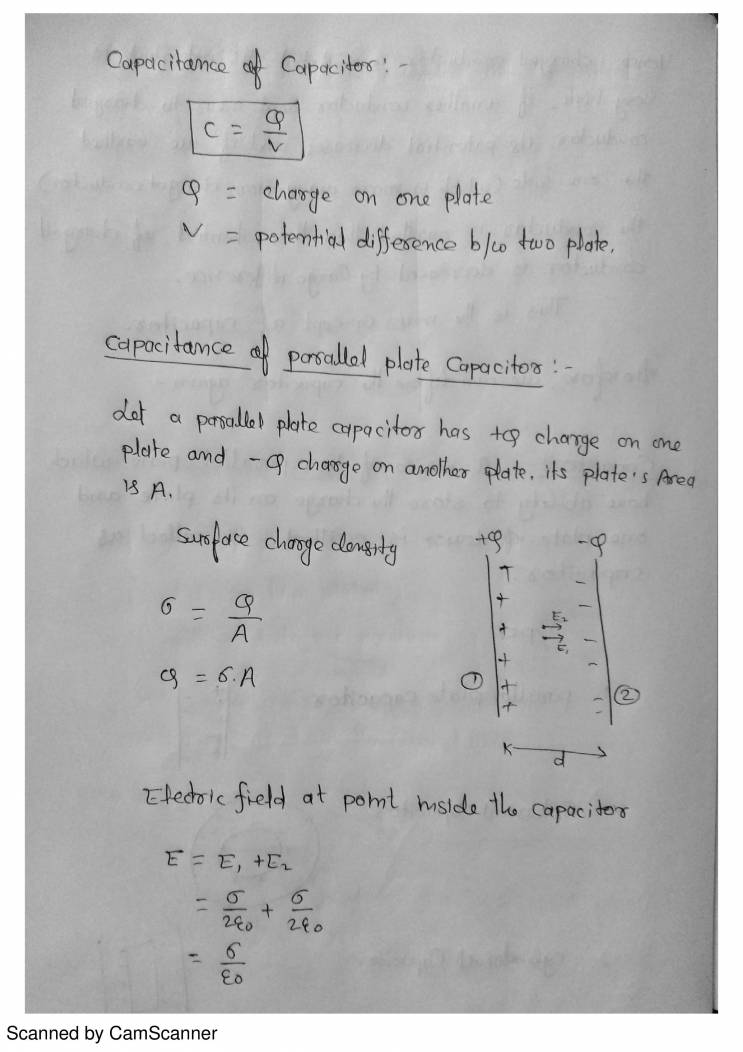 Capacitance of Capacitor:-
C = Q/V
Q = charge on one plate
V = potential difference b/w two plate.
Capacitance of parallel plate Capacitor:-
Let a parallel plate capacitor has +Q charge on one
plate and -Q charge on another plate. its plate's Area
is A.
Surface charge density
+Q -Q
σ = Q/A
E₂
E₁
Q = σ.A
① ②
d
Electric field at point inside the capacitor
E = E₁ + E₂
= σ/2ε₀ + σ/2ε₀
= σ/ε₀
Scanned by CamScanner